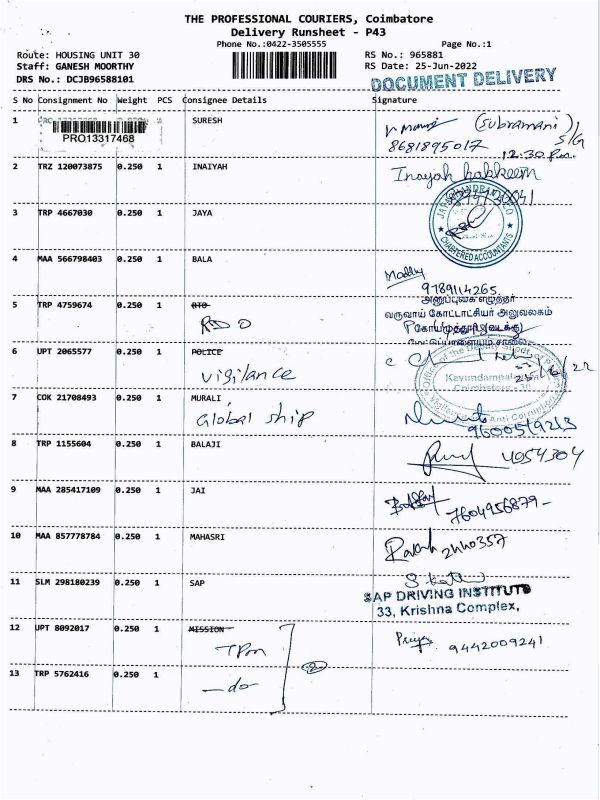 THE PROFESSIONAL COURIERS, Coimbatore
Delivery Runsheet - P43
Phone No.:0422-3505555 Page No.:1
Route: HOUSING UNIT 30 RS No.: 965881
Staff: GANESH MOORTHY RS Date: 25-Jun-2022
DRS No.: DCJB96588101
DOCUMENT DELIVERY
S No Consignment No Weight PCS Consignee Details Signature
1 SURESH (Subramani)
PRO13317468 8681895017 S/G
12:30 P.m.
2 TRZ 120073875 0.250 1 INAIYAH Inayah
3 TRP 4667030 0.250 1 JAYA
CHARTERED ACCOUNTANTS
4 MAA 566798403 0.250 1 BALA Madhu
9789114265
5 TRP 4759674 0.250 1 RTO அனுப்புகை எழுத்தர்
RDO வருவாய் கோட்டாட்சியர் அலுவலகம்
6 UPT 2065577 0.250 1 POLICE
Vigilance
Office of the Deputy Supdt. of Police
Kavundampalayam
Coimbatore - 30
Vigilance Anti Corruption
7 COK 21708493 0.250 1 MURALI
Global ship 9600519213
8 TRP 1155604 0.250 1 BALAJI 4054304
9 MAA 285417109 0.250 1 JAI
7604956879
10 MAA 857778784 0.250 1 MAHASRI 2440357
11 SLM 298180239 0.250 1 SAP
SAP DRIVING INSTITUTE
33, Krishna Complex,
12 UPT 8092017 0.250 1 MISSION Priya 9442009241
13 TRP 5762416 0.250 1 -do- 2